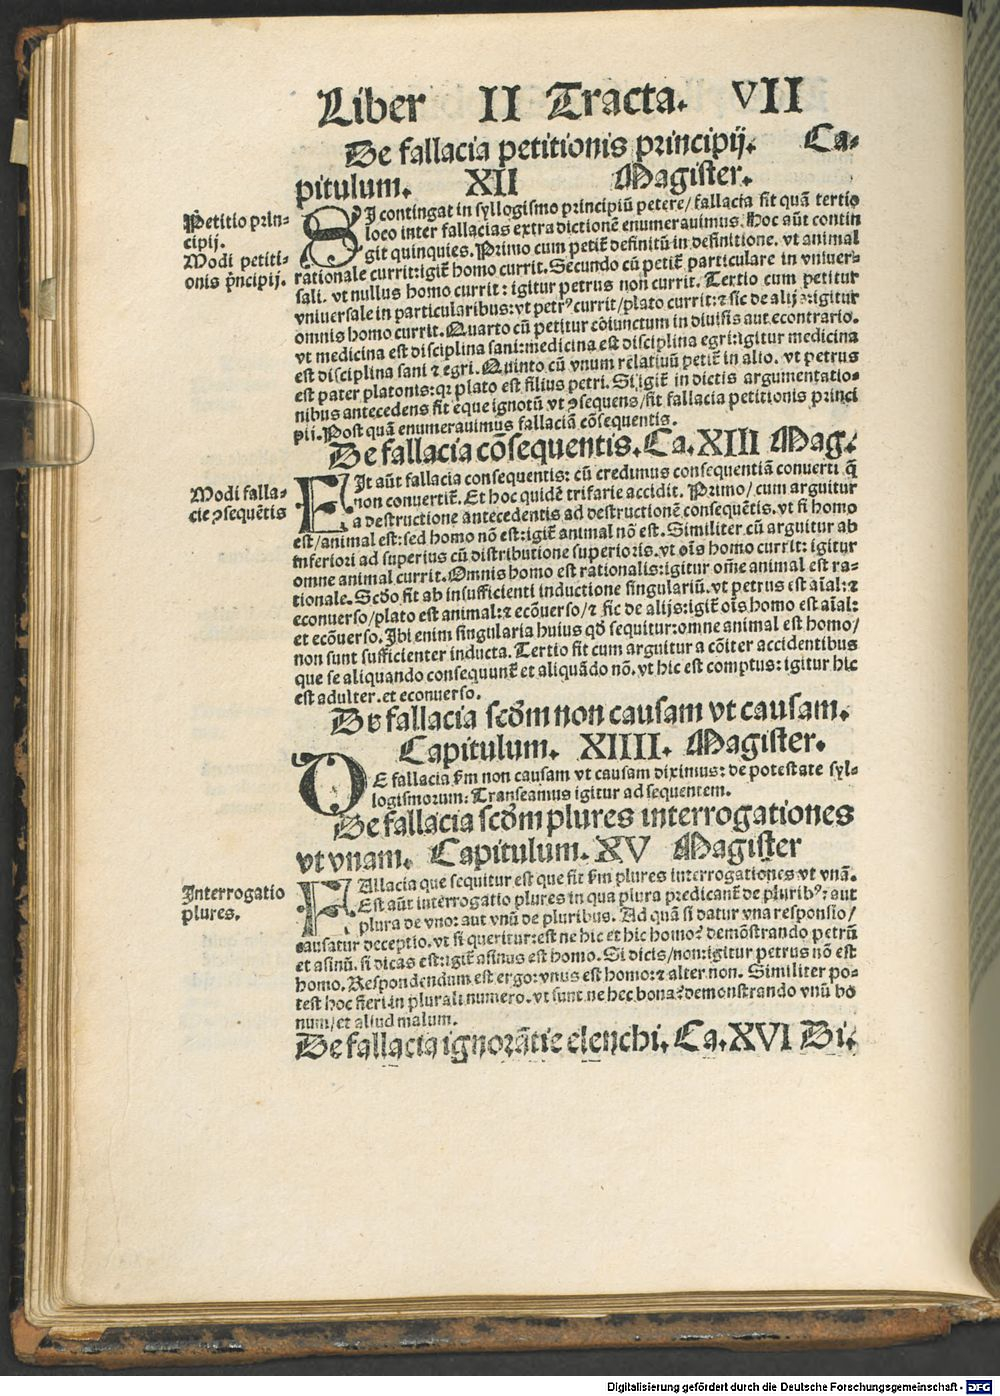 Liber II Tracta. VII
De fallacia petitionis principij. Ca-
pitulum. XII Magister.
Petitio prin-
cipij.
Modi petiti-
onis p̄ncipij.
SI contingat in syllogismo principiū petere/ fallacia fit quā tertio
loco inter fallacias extra dictionē enumerauimus. Hoc aūt contin
git quinquies. Primo cum petit̄ definitū in definitione. vt animal
rationale currit: igit̄ homo currit. Secundo cū petit̄ particulare in vniuer-
sali. vt nullus homo currit: igitur petrus non currit. Tertio cum petitur
vniuersale in particularibus: vt petrꝰ currit/ plato currit: ⁊ sic de alijs: igitur
omnis homo currit. Quarto cū petitur cōiunctum in diuisis aut econtrario.
vt medicina est disciplina sani: medicina est disciplina egri: igitur medicina
est disciplina sani ⁊ egri. Quinto cū vnum relatiuū petit̄ in alio. vt petrus
est pater platonis: qꝛ plato est filius petri. Si igit̄ in dictis argumentatio-
nibus antecedens sit eque ignotū vt ꝯsequens/ fit fallacia petitionis princi
pii. Post quā enumerauimus fallaciā cōsequentis.
De fallacia cōsequentis. Ca. XIII Mag.
Modi falla-
cie ꝯsequētis
FIt aūt fallacia consequentis: cū credimus consequentiā conuerti q̄
non conuertit̄. Et hoc quidē trifarie accidit. Primo/ cum arguitur
a destructione antecedentis ad destructionē consequētis. vt si homo
est/ animal est: sed homo nō est: igit̄ animal nō est. Similiter cū arguitur ab
inferiori ad superius cū distributione superioris. vt oīs homo currit: igitur
omne animal currit. Omnis homo est rationalis: igitur om̄e animal est ra-
tionale. Scďo fit ab insufficienti inductione singulariū. vt petrus est aīal: ⁊
econuerso/ plato est animal: ⁊ ecōuerso/ ⁊ sic de alijs: igit̄ oīs homo est aīal:
et ecōuerso. Ibi enim singularia huius qď sequitur: omne animal est homo/
non sunt sufficienter inducta. Tertio fit cum arguitur a cōiter accidentibus
que se aliquando consequunt̄ et aliquādo nō. vt hic est comptus: igitur hic
est adulter. et econuerso.
De fallacia scďm non causam vt causam.
Capitulum. XIIII. Magister.
DE fallacia ẜm non causam vt causam diximus: de potestate syl-
logismorum: Transeamus igitur ad sequentem.
De fallacia scďm plures interrogationes
vt vnam. Capitulum. XV Magister
Interrogatio
plures.
FAllacia que sequitur est que fit ẜm plures interrogationes vt vnā.
Est aūt interrogatio plures in qua plura predicant̄ de pluribꝰ: aut
plura de vno: aut vnū de pluribus. Ad quā si datur vna responsio/
causatur deceptio. vt si queritur: est ne hic et hic homo? demōstrando petrū
et asinū. si dicas est: igit̄ asinus est homo. Si dicis/ non: igitur petrus nō est
homo. Respondendum est ergo: vnus est homo: ⁊ alter non. Similiter po-
test hoc fieri in plurali numero. vt sunt ne hec bona? demonstrando vnū bo
num/ et aliud malum.
De fallacia ignorātie elenchi. Ca. XVI Di.
Digitalisierung gefördert durch die Deutsche Forschungsgemeinschaft - DFG